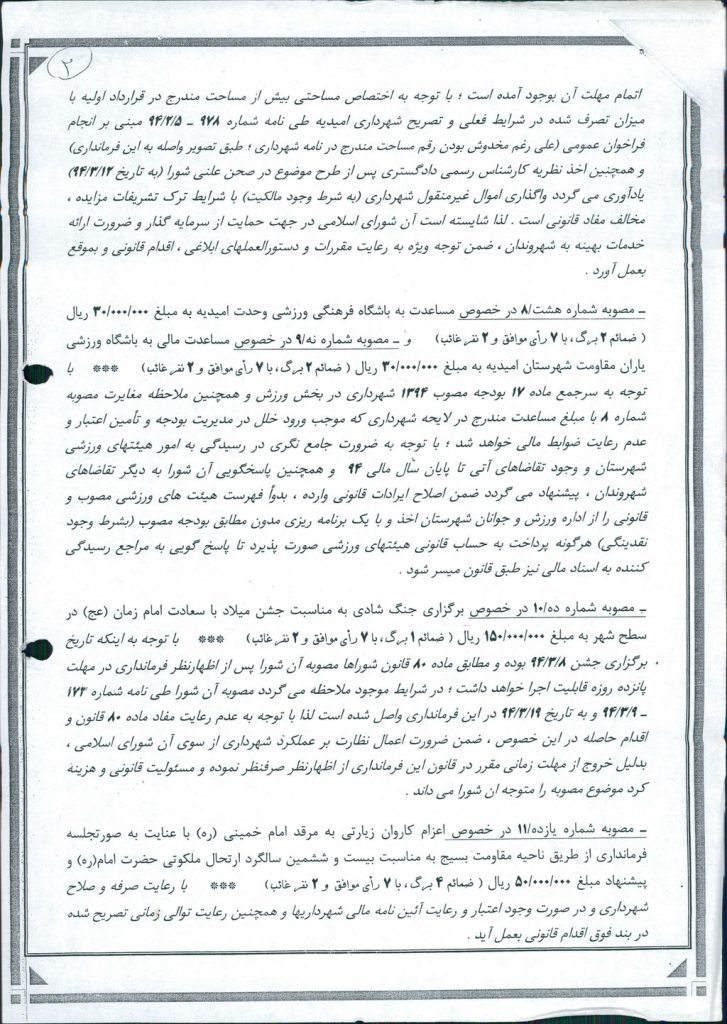 ۲
اتمام مهلت آن بوجود آمده است ؛ با توجه به اختصاص مساحتی بیش از مساحت مندرج در قرارداد اولیه با
میزان تصرف شده در شرایط فعلی و تصریح شهرداری امیدیه طی نامه شماره ۹۷۸ ـ ۹۴/۲/۵ مبنی بر انجام
فراخوان عمومی (علی رغم مخدوش بودن رقم مساحت مندرج در نامه شهرداری ؛ طبق تصویر واصله به این فرمانداری)
و همچنین اخذ نظریه کارشناس رسمی دادگستری پس از طرح موضوع در صحن علنی شورا (به تاریخ ۹۴/۳/۱۲)
یادآوری می گردد واگذاری اموال غیرمنقول شهرداری (به شرط وجود مالکیت) با شرایط ترک تشریفات مزایده ،
مخالف مفاد قانونی است . لذا شایسته است آن شورای اسلامی در جهت حمایت از سرمایه گذار و ضرورت ارائه
خدمات بهینه به شهروندان ، ضمن توجه ویژه به رعایت مقررات و دستورالعملهای ابلاغی ، اقدام قانونی و بموقع
بعمل آورد .
ـ مصوبه شماره هشت/۸ در خصوص مساعدت به باشگاه فرهنگی ورزشی وحدت امیدیه به مبلغ ۳۰/۰۰۰/۰۰۰ ریال
( ضمائم ۲ برگ، با ۷ رأی موافق و ۲ نفر غائب) و ـ مصوبه شماره نه/۹ در خصوص مساعدت مالی به باشگاه ورزشی
یاران مقاومت شهرستان امیدیه به مبلغ ۳۰/۰۰۰/۰۰۰ ریال ( ضمائم ۲ برگ، با ۷ رأی موافق و ۲ نفر غائب) *** با
توجه به سرجمع ماده ۱۷ بودجه مصوب ۱۳۹۴ شهرداری در بخش ورزش و همچنین ملاحظه مغایرت مصوبه
شماره ۸ با مبلغ مساعدت مندرج در لایحه شهرداری که موجب ورود خلل در مدیریت بودجه و تأمین اعتبار و
عدم رعایت ضوابط مالی خواهد شد ؛ با توجه به ضرورت جامع نگری در رسیدگی به امور هیئتهای ورزشی
شهرستان و وجود تقاضاهای آتی تا پایان سال مالی ۹۴ و همچنین پاسخگویی آن شورا به دیگر تقاضاهای
شهروندان ، پیشنهاد می گردد ضمن اصلاح ایرادات قانونی وارده ، بدواً فهرست هیئت های ورزشی مصوب و
قانونی را از اداره ورزش و جوانان شهرستان اخذ و با یک برنامه ریزی مدون مطابق بودجه مصوب (بشرط وجود
نقدینگی) هرگونه پرداخت به حساب قانونی هیئتهای ورزشی صورت پذیرد تا پاسخ گویی به مراجع رسیدگی
کننده به اسناد مالی نیز طبق قانون میسر شود .
ـ مصوبه شماره ده/۱۰ در خصوص برگزاری جنگ شادی به مناسبت جشن میلاد با سعادت امام زمان (عج) در
سطح شهر به مبلغ ۱۵۰/۰۰۰/۰۰۰ ریال ( ضمائم ۱ برگ، با ۷ رأی موافق و ۲ نفر غائب) *** با توجه به اینکه تاریخ
برگزاری جشن ۹۴/۳/۸ بوده و مطابق ماده ۸۰ قانون شوراها مصوبه آن شورا پس از اظهارنظر فرمانداری در مهلت
پانزده روزه قابلیت اجرا خواهد داشت ؛ در شرایط موجود ملاحظه می گردد مصوبه آن شورا طی نامه شماره ۱۷۳
ـ ۹۴/۳/۹ و به تاریخ ۹۴/۳/۱۹ در این فرمانداری واصل شده است لذا با توجه به عدم رعایت مفاد ماده ۸۰ قانون و
اقدام حاصله در این خصوص ، ضمن ضرورت اعمال نظارت بر عملکرد شهرداری از سوی آن شورای اسلامی ،
بدلیل خروج از مهلت زمانی مقرر در قانون این فرمانداری از اظهارنظر صرفنظر نموده و مسئولیت قانونی و هزینه
کرد موضوع مصوبه را متوجه ان شورا می داند .
ـ مصوبه شماره یازده/۱۱ در خصوص اعزام کاروان زیارتی به مرقد امام خمینی (ره) با عنایت به صورتجلسه
فرمانداری از طریق ناحیه مقاومت بسیج به مناسبت بیست و ششمین سالگرد ارتحال ملکوتی حضرت امام(ره) و
پیشنهاد مبلغ ۵۰/۰۰۰/۰۰۰ ریال ( ضمائم ۴ برگ، با ۷ رأی موافق و ۲ نفر غائب) *** با رعایت صرفه و صلاح
شهرداری و در صورت وجود اعتبار و رعایت آئین نامه مالی شهرداریها و همچنین رعایت توالی زمانی تصریح شده
در بند فوق اقدام قانونی بعمل آید .